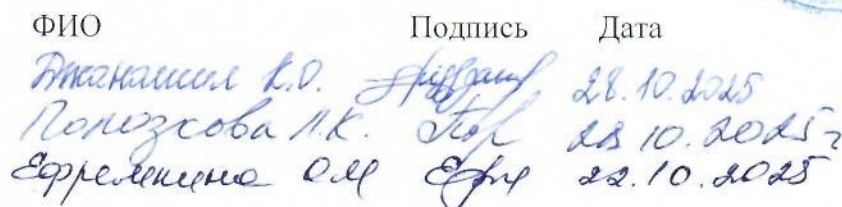 ФИО Подпись Дата
Джанашия К.О. 28.10.2025
Полозкова Л.К. 28 10.2025г
Ефремкина ОМ 22.10.2025